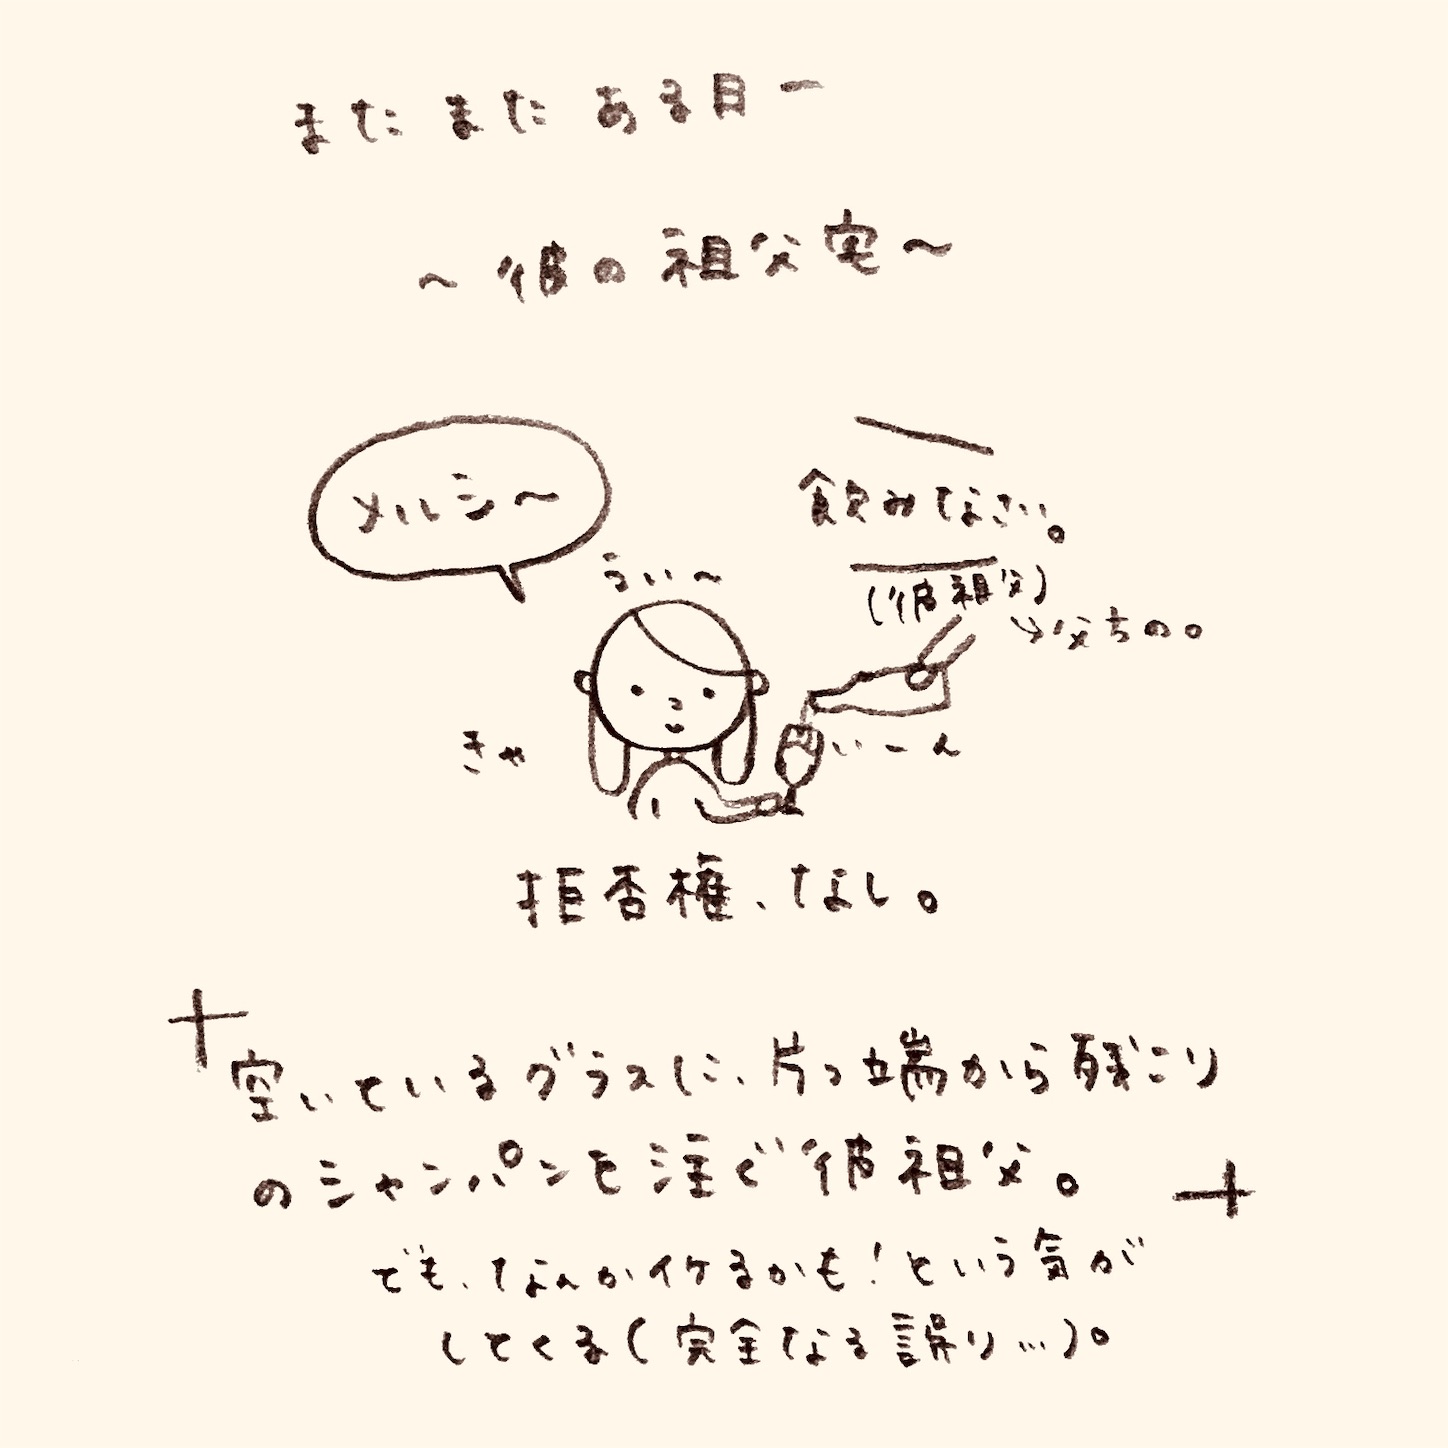 またまたある日ー
〜彼の祖父宅〜
メルシ〜
飲みなさい。
(彼祖父)
→父ちの。
うぃ〜
きゃ
いーん
拒否権、なし。
空いているグラスに、片っ端から残こり
のシャンパンを注ぐ彼祖父。
でも、なんかイケるかも！という気が
してくる(完全なる誤り…)。